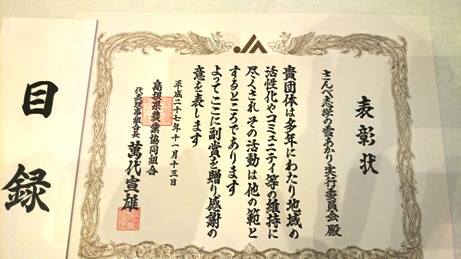 表彰状
さんべ志学の雪あかり実行委員会 殿
貴団体は多年にわたり地域の
活性化やコミュニティ等の維持に
尽くされ その活動は他の範と
するところであります
よってここに副賞を贈り感謝の
意を表します
平成二十七年十一月十三日
島根県農業協同組合
代表理事組合長 萬代宣雄
目録